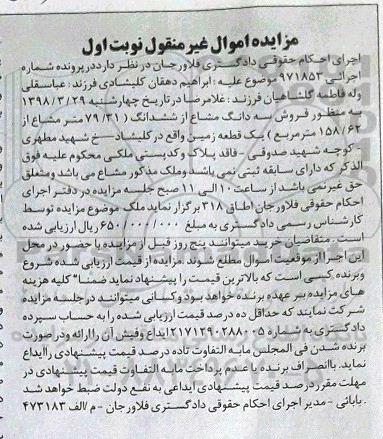 مزایده اموال غیر منقول نوبت اول
اجرای احکام حقوقی دادگستری فلاورجان در نظر دارد در پرونده شماره
اجرائی ۹۷۱۸۵۳ موضوع علیه : ابراهیم دهقان کلیشادی فرزند : عباسقلی
وله فاطمه گلشاهیان فرزند : غلامرضا در تاریخ چهارشنبه ۱۳۹۸/۳/۲۹
به منظور فروش سه دانگ مشاع از ششدانگ ( ۷۹/۳۱ متر مشاع از
۱۵۸/۶۲ مترمربع ) یک قطعه زمین واقع در کلیشادخ شهید مطهری
- کوچه شهید صدوقی - فاقد پلاک و کدپستی ملکی محکوم علیه فوق
الذکر که دارای سابقه ثبتی نمی باشد وملک مذکور مشاع می باشد ومتعلق
حق غیر نمی باشد از ساعت ۱۰ الی ۱۱ صبح جلسه مزایده در دفتر اجرای
احکام حقوقی فلاورجان اطاق ۳۱۸ برگزار نماید ملک موضوع مزایده توسط
کارشناس رسمی دادگستری به مبلغ ۶۵۰/۰۰۰/۰۰۰ ریال ارزیابی شده
است . متقاضیان خرید میتوانند پنج روز قبل از مزایده با حضور در محل
این اجرا از موقعیت اموال مطلع شوند. مزایده از قیمت ارزیابی شده شروع
وبرنده کیسی است که بالاترین قیمت را پیشنهاد نماید ضمنا" کلیه هزینه
های مزایده بر عهده برنده خواهد بود و کسانی میتوانند در جلسه مزایده
شرکت نمایند که حداقل ده درصد قیمت ارزیابی شده را به حساب سپرده
دادگستری به شماره ۲۱۷۱۲۹۰۲۸۸۰۰۵ ایداع وفیش آن را ارائه ودرصورت
برنده شدن فی المجلس مابه التفاوت تاده درصد قیمت پیشنهادی راایداع
نماید. باانصراف برنده یا عدم پرداخت مابه التفاوت قیمت پیشنهادی در
مهلت مقرر ده درصد قیمت پیشنهادی ایداعی به نفع دولت ضبط خواهد شد
. بابائی - مدیر اجرای احکام حقوقی دادگستری فلاورجان - م/الف ۴۷۳۱۸۳